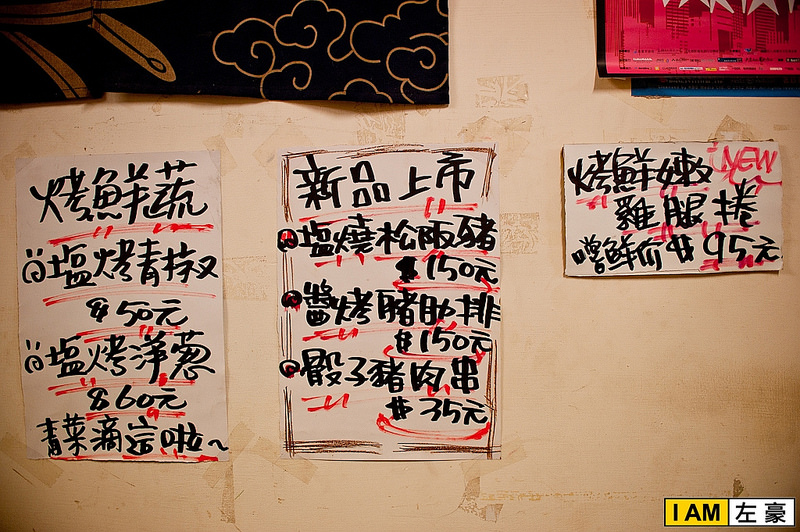 烤鮮蔬
塩烤青椒
$50元
塩烤洋葱
$60元
青菜滴這啦~
新品上市
塩燒松阪豬
$150元
醬烤豬肋排
$150元
骰子豬肉串
$35元
NEW
烤鮮嫩
雞腿捲
嚐鮮价$95元
I AM 左豪